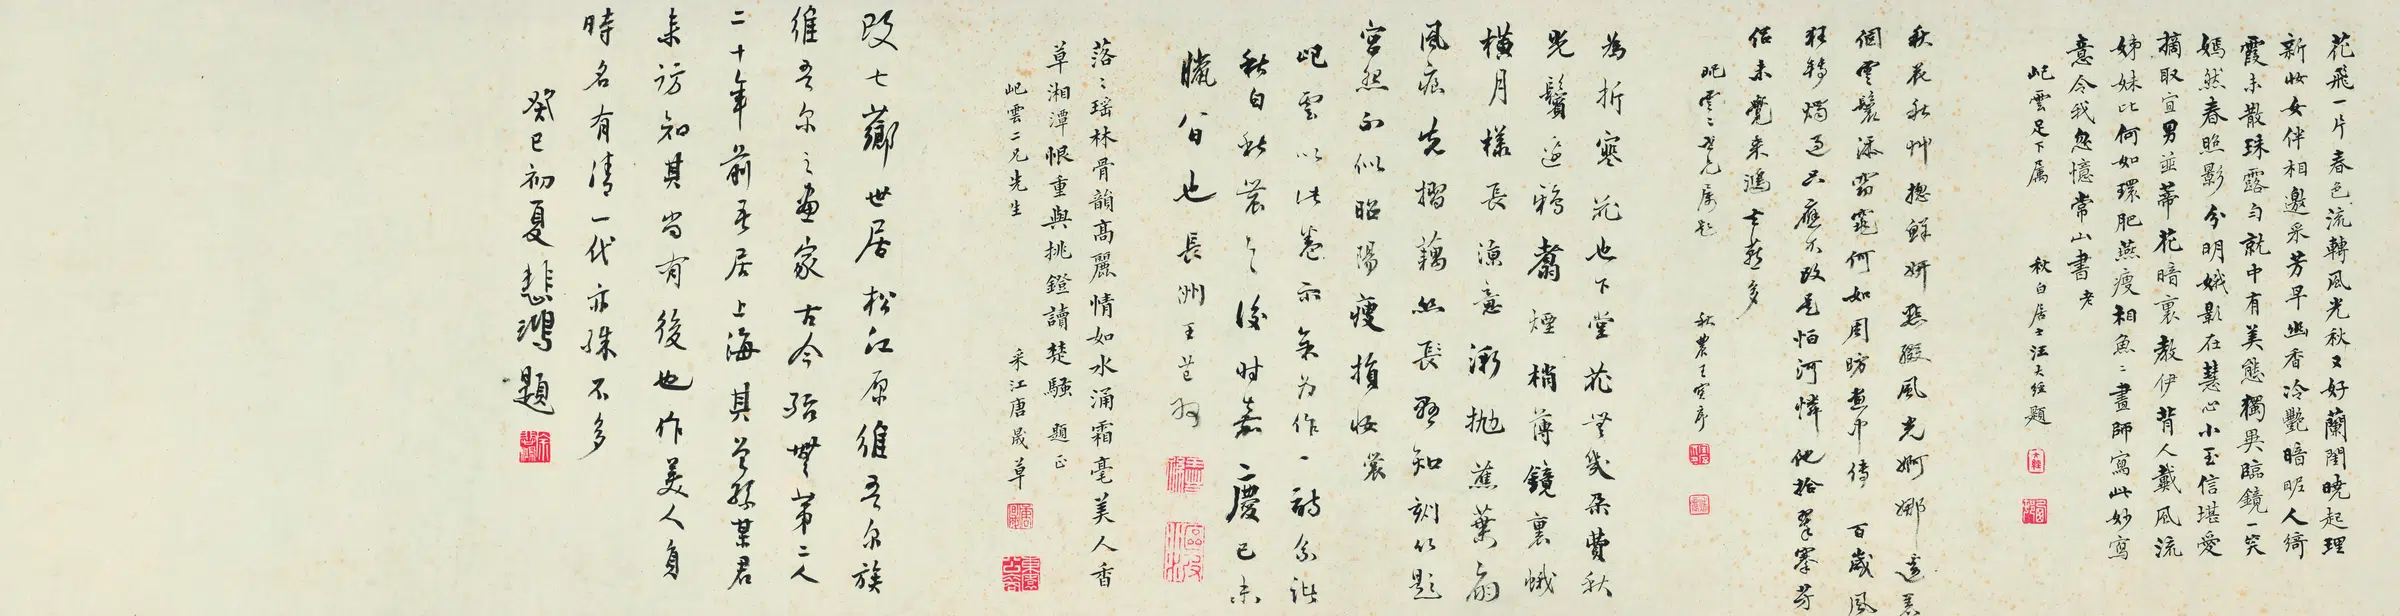 花飛一片春色流轉風光秋又好蘭閨曉起理
新妝女伴相邀采芳早幽香冷艷暗昵人綺
霞未散珠露勻就中有美態獨異臨鏡一笑
嫣然春照影分明娥影在慧心小玉信堪愛
摘取宜男並蒂花暗裏教伊背人戴風流
姊妹比何如環肥燕瘦相魚魚畫師寫此妙寫
意令我忽憶常山書 老
屺雲足下属 秋白居士汪大經題
秋花秋艸揔鮮妍點綴風光婀娜邊
個雲鬟添
何如周昉畫中傳 百歲風
狂轉燭
侶未覺來鴻去燕多
屺雲二兄属題 秋農王
為折寒花也下堂花無幾朵費秋
光鬢邊鴉翦煙梢薄鏡裏蛾
橫月樣長涼意漸拋蕉葉扇
風痕先摺藕絲長
宮怨不似昭陽瘦損妝 裳
屺雲以此卷示矣为作一詩
秋白秋農之後时嘉慶己未
臘八日也長洲王芑孫
落落瑶林骨韻高麗情如水涌霜毫美人香
草湘潭恨重與挑鐙讀楚騷 題正
屺雲二兄先生 采江唐晟草
改七薌世居松江原維吾尔族
維吾尔之畫家古今殆無第二人
二十年前吾居上海其曾孫某君
来訪知其尚有後也作美人負
時名有清一代亦殊不多
癸巳初夏悲鴻題